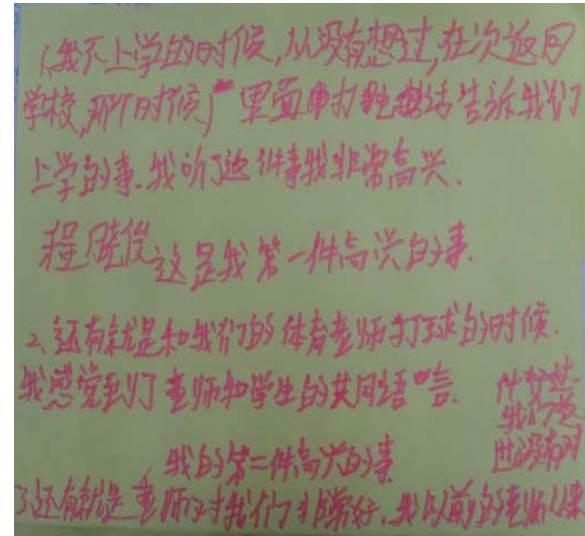 1、我不上学的时候,从没有想过,在次返回
学校,那个时候,厂里面申打电话告诉我们
上学的事.我听了这件事我非常高兴.
程晓俊 这是我第一件高兴的事.
2、还有就是和我们的体育老师打球的时候.
我感觉到了老师和学生的共同语言.
我的第二件高兴的事
3还有就是老师对我们非常好,我以前的老师从来
没有对
我们